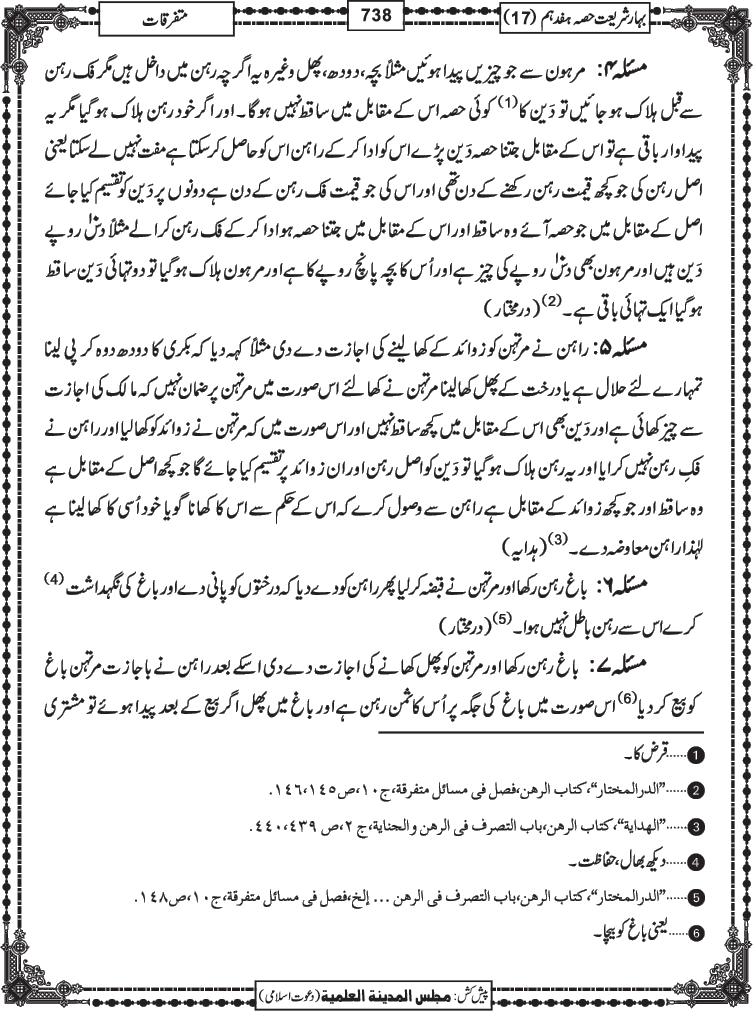 بہارِ شریعت حصہ ہفدہم (17)
738
متفرقات
مسئلہ ۴: مرہون سے جو چیزیں پیدا ہوئیں مثلاً بچہ، دودھ، پھل وغیرہ یہ اگرچہ رہن میں داخل ہیں مگر فکِ رہن
سے قبل ہلاک ہو جائیں تو دَین کا(1) کوئی حصہ اس کے مقابل میں ساقط نہیں ہوگا۔ اور اگر خود رہن ہلاک ہوگیا مگر یہ
پیداوار باقی ہے تو اس کے مقابل جتنا حصہ دَین پڑے اس کو ادا کرکے راہن اس کو حاصل کرسکتا ہے مفت نہیں لے سکتا یعنی
اصل رہن کی جو کچھ قیمت رہن رکھنے کے دن تھی اور اس کی جو قیمت فک رہن کے دن ہے دونوں پر دَین کو تقسیم کیا جائے
اصل کے مقابل میں جو حصہ آئے وہ ساقط اور اس کے مقابل میں جتنا حصہ ہو ادا کرکے فک رہن کرالے مثلاً دسؔ روپے
دَین ہیں اور مرہون بھی دسؔ روپے کی چیز ہے اور اُس کا بچہ پانچ روپے کا ہے اور مرہون ہلاک ہوگیا تو دو تہائی دَین ساقط
ہوگیا ایک تہائی باقی ہے۔(2) (درمختار)
مسئلہ ۵: راہن نے مرتہن کو زوائد کے کھا لینے کی اجازت دے دی مثلاً کہہ دیا کہ بکری کا دودھ دوہ کر پی لینا
تمہارے لئے حلال ہے یا درخت کے پھل کھا لینا مرتہن نے کھا لئے اس صورت میں مرتہن پر ضمان نہیں کہ مالک کی اجازت
سے چیز کھائی ہے اور دَین بھی اس کے مقابل میں کچھ ساقط نہیں اور اس صورت میں کہ مرتہن نے زوائد کو کھالیا اور راہن نے
فکِ رہن نہیں کرایا اور یہ رہن ہلاک ہوگیا تو دَین کو اصل رہن اور ان زوائد پر تقسیم کیا جائے گا جو کچھ اصل کے مقابل ہے
وہ ساقط اور جو کچھ زوائد کے مقابل ہے راہن سے وصول کرے کہ اس کے حکم سے اس کا کھانا گویا خود اُسی کا کھا لینا ہے
لہٰذا راہن معاوضہ دے۔(3) (ہدایہ)
مسئلہ ۶: باغ رہن رکھا اور مرتہن نے قبضہ کرلیا پھر راہن کو دے دیا کہ درختوں کو پانی دے اور باغ کی نگہداشت(4)
کرے اس سے رہن باطل نہیں ہوا۔(5) (درمختار)
مسئلہ ۷: باغ رہن رکھا اور مرتہن کو پھل کھانے کی اجازت دے دی اسکے بعد راہن نے باجازت مرتہن باغ
کو بیع کردیا(6) اس صورت میں باغ کی جگہ پر اُس کا ثمن رہن ہے اور باغ میں پھل اگر بیع کے بعد پیدا ہوئے تو مشتری
1......قرض کا۔
2......”الدرالمختار“، کتاب الرھن، فصل فی مسائل متفرقة، ج۱۰، ص۱۴۵، ۱۴۶.
3......”الھدایة“، کتاب الرھن، باب التصرف فی الرھن والجنایة، ج۲، ص ۴۳۹، ۴۴۰.
4......دیکھ بھال، حفاظت۔
5......”الدرالمختار“، کتاب الرھن، باب التصرف فی الرھن ... إلخ، فصل فی مسائل متفرقة، ج۱۰، ص۱۴۸.
6......یعنی باغ کو بیچا۔
پیش کش: مجلس المدینة العلمیة (دعوت اسلامی)